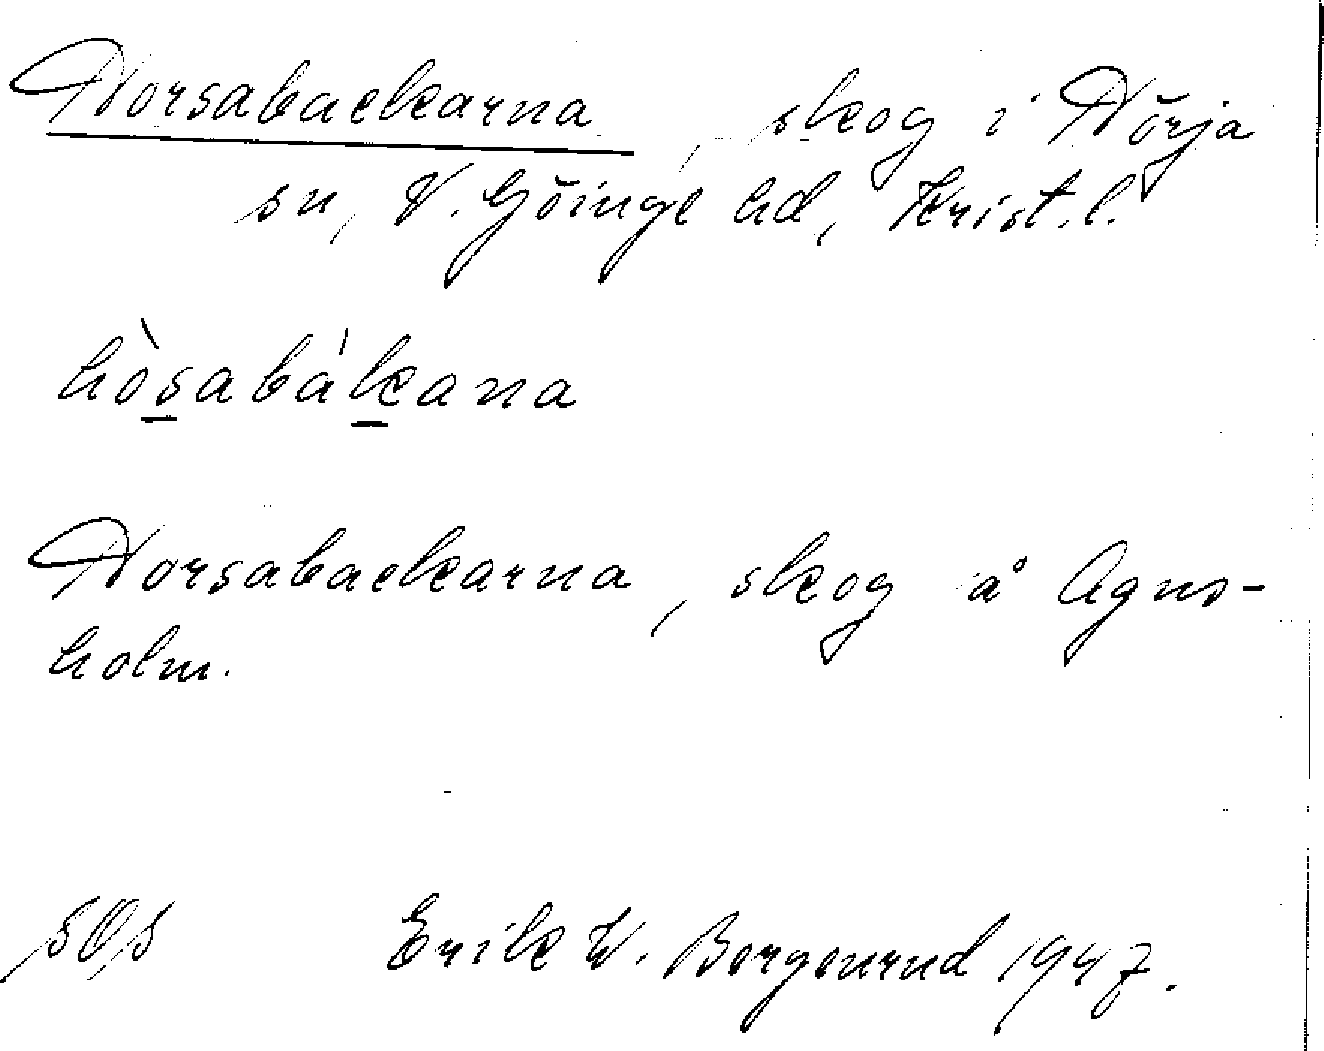 Horsabackarna, skog i Hörja
sn, V. Göinge hd, Krist. l.
hòsabákana
Horsabackarna, skog å Agns-
holm.
SOS Erik W. 1947.